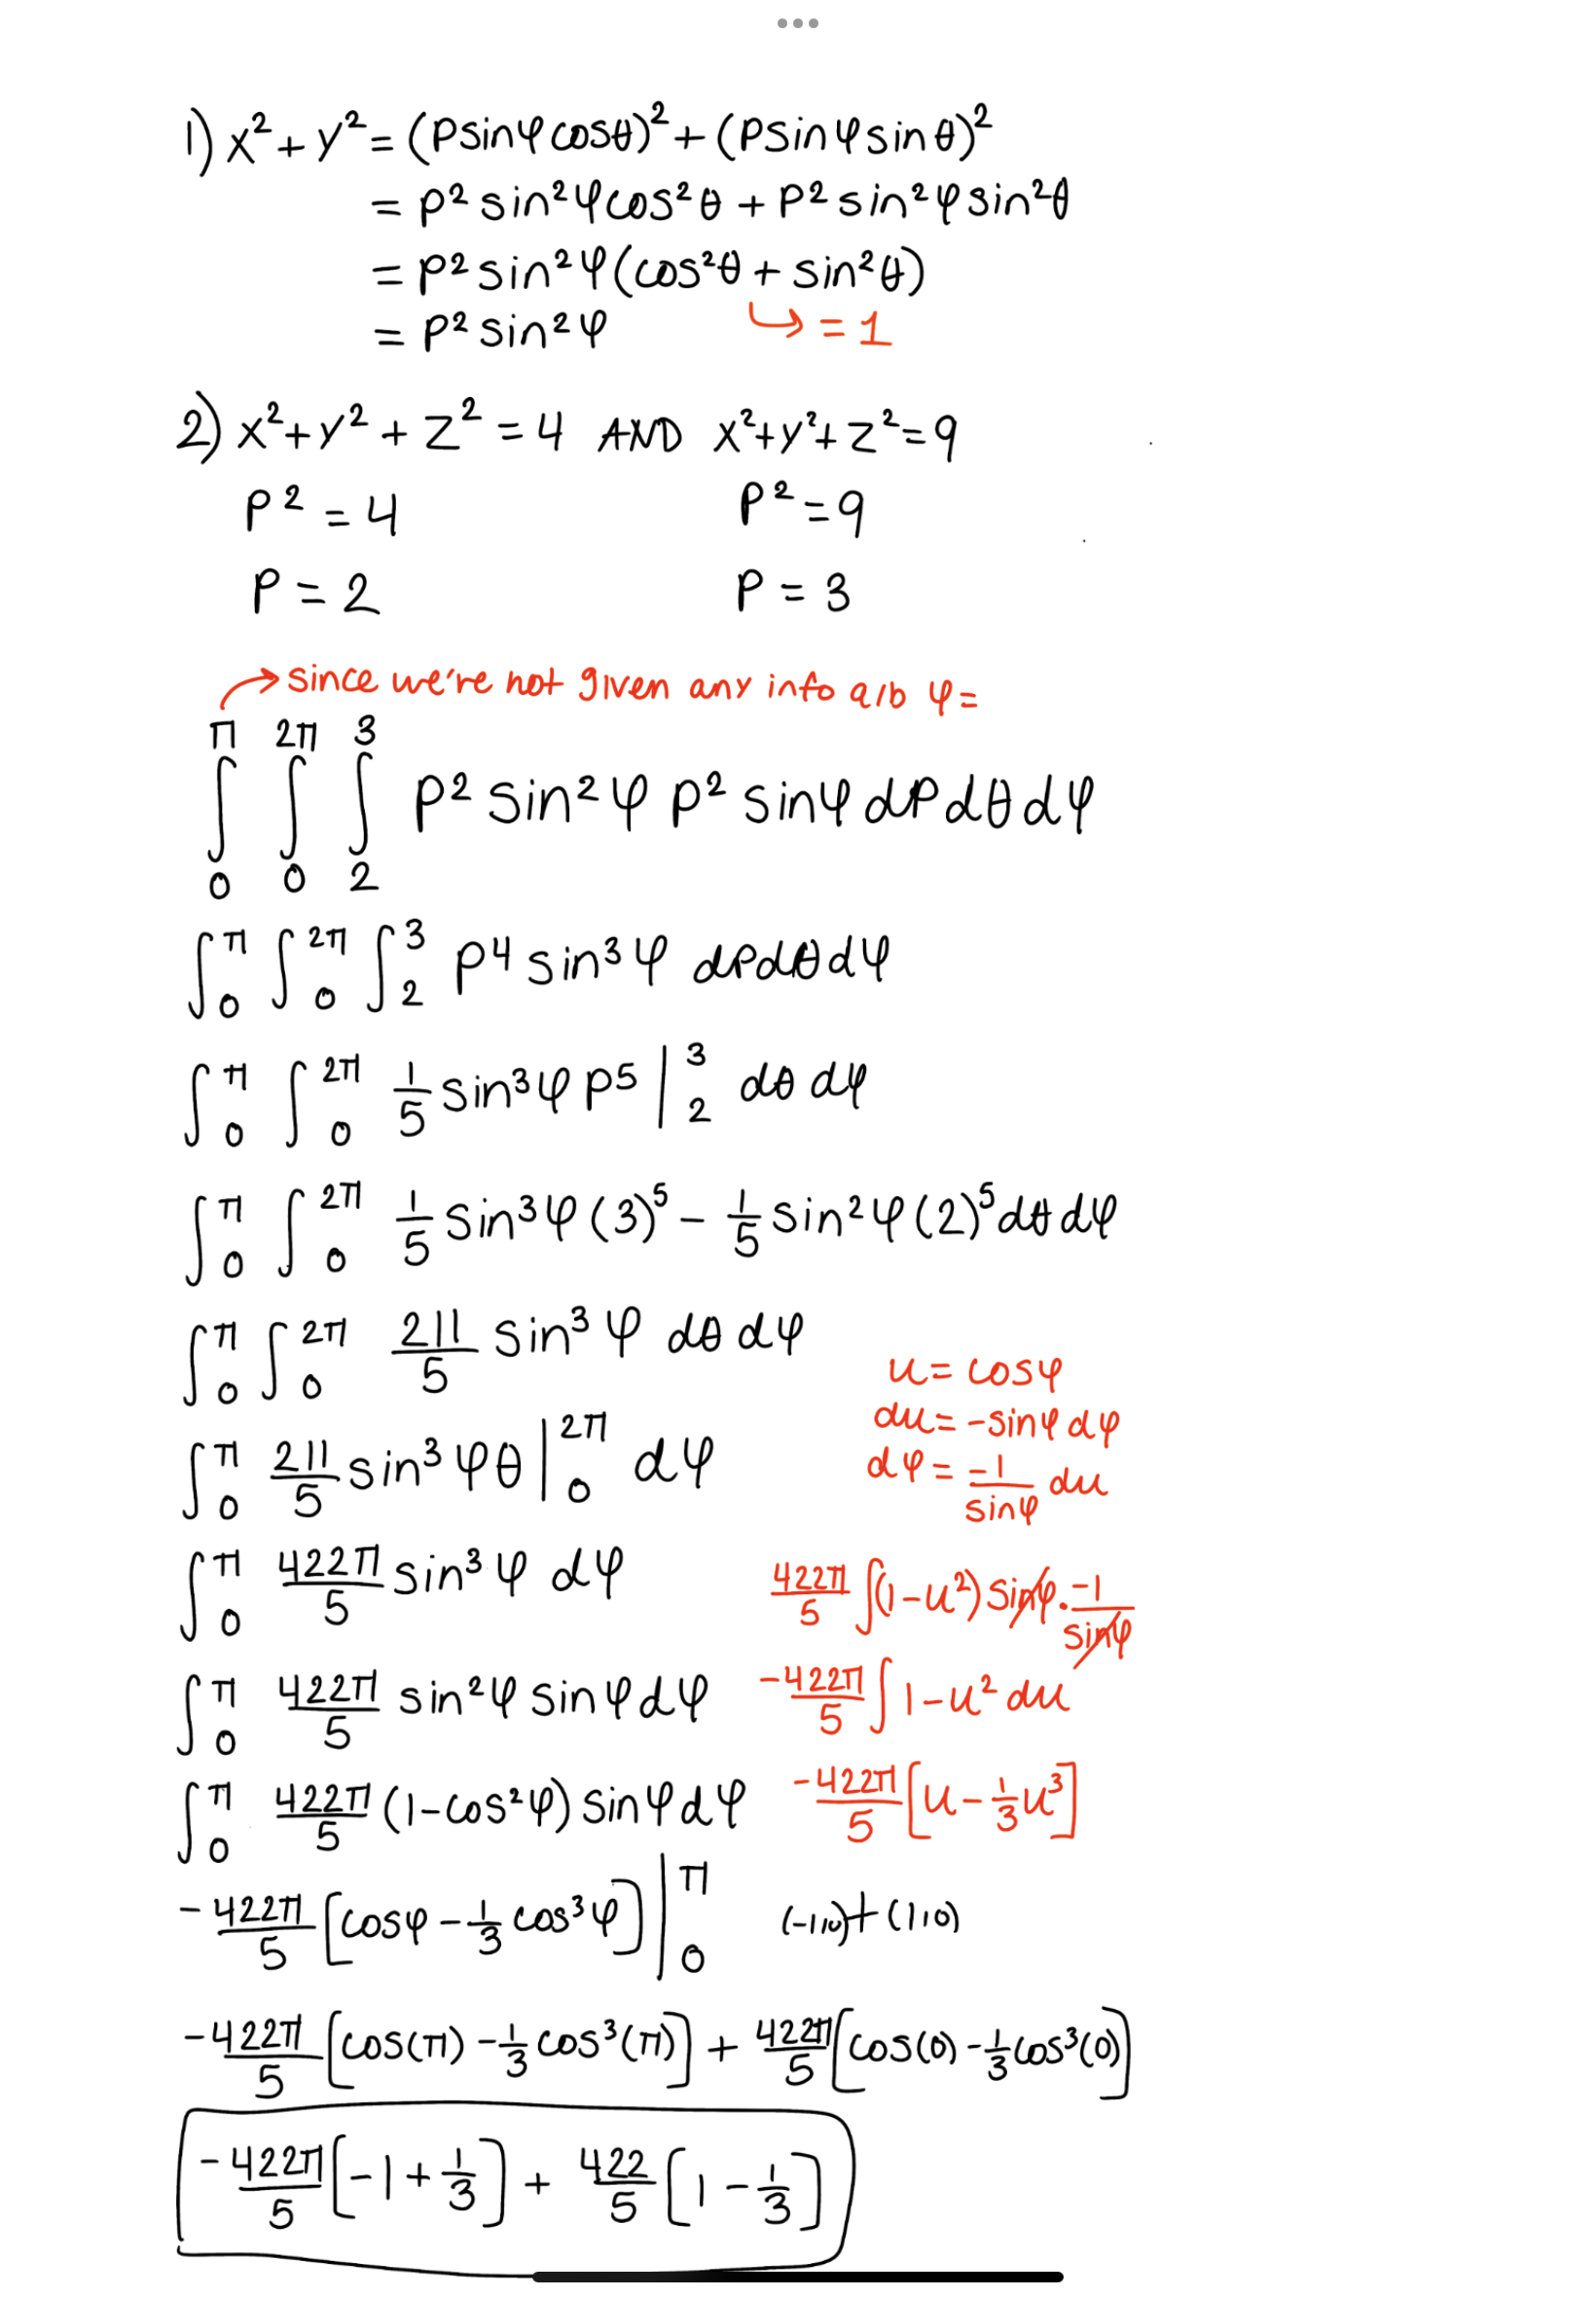 1) x² + y² = (ρsinφcosθ)² + (ρsinφsinθ)²
= ρ² sin²φcos²θ + ρ² sin²φsin²θ
= ρ² sin²φ(cos²θ + sin²θ)
↳ = 1
= ρ² sin²φ
2) x² + y² + z² = 4 AND x² + y² + z² = 9
ρ² = 4 ρ² = 9
ρ = 2 ρ = 3
→ since we're not given any info a/b φ =
∫₀^π ∫₀^2π ∫₂^3 ρ² sin²φ ρ² sinφ dρ dθ dφ
∫₀^π ∫₀^2π ∫₂^3 ρ⁴ sin³φ dρdθdφ
∫₀^π ∫₀^2π 1/5 sin³φ ρ⁵ |₂^3 dθ dφ
∫₀^π ∫₀^2π 1/5 sin³φ (3)⁵ - 1/5 sin²φ (2)⁵ dθ dφ
∫₀^π ∫₀^2π 211/5 sin³φ dθ dφ
∫₀^π 211/5 sin³φθ |₀^2π dφ
∫₀^π 422π/5 sin³φ dφ
∫₀^π 422π/5 sin²φ sinφ dφ
∫₀^π 422π/5 (1-cos²φ) sinφ dφ
u = cosφ
du = -sinφ dφ
dφ = -1/sinφ du
422π/5 ∫(1-u²) sinφ · -1/sinφ
-422π/5 ∫ 1-u² du
-422π/5 [u - 1/3 u³]
-422π/5 [cosφ - 1/3 cos³φ] |₀^π (-1,0) + (1,0)
-422π/5 [cos(π) - 1/3 cos³(π)] + 422π/5 [cos(0) - 1/3 cos³(0)]
-422π/5 [-1 + 1/3] + 422/5 [1 - 1/3]